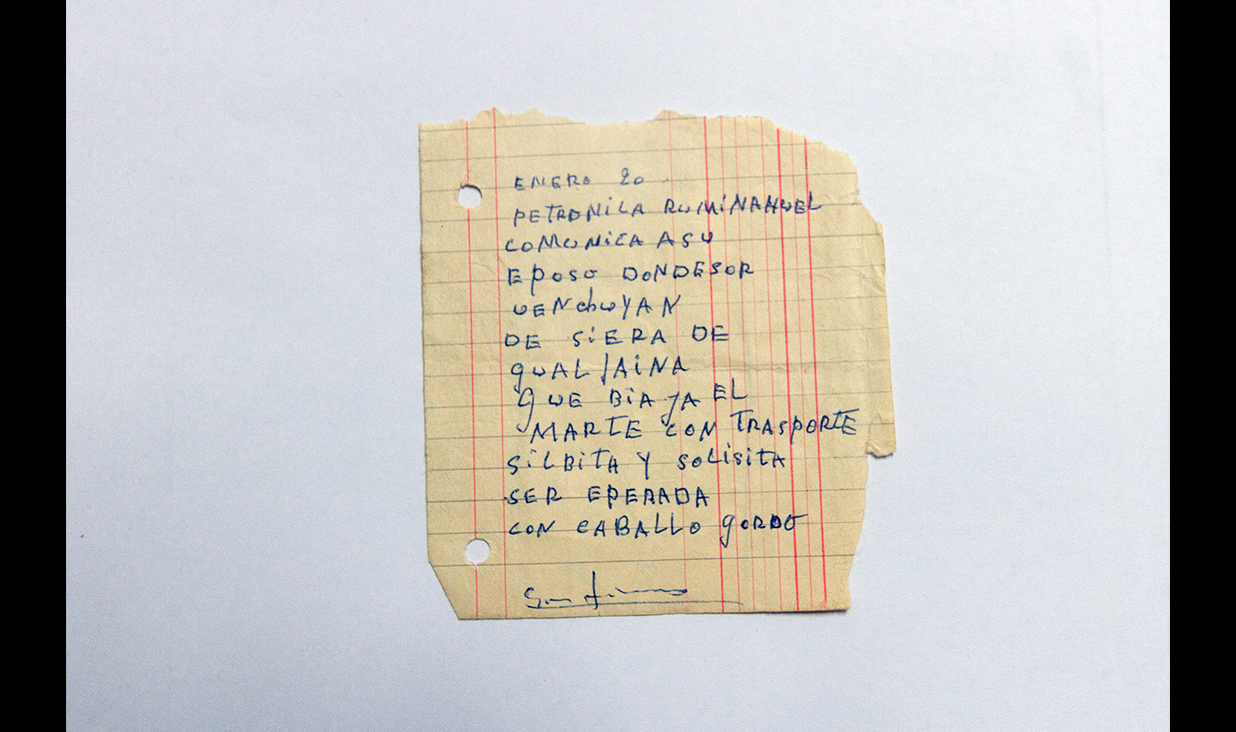 ENERO 20
PETRONILA RUMINAHUEL
COMUNICA ASU
EPOSO DONDESOR
UENchuYAN
DE SIERA DE
GUALJAINA
QUE BIAJA EL
MARTE CON TRASPORTE
SILBITA Y SOLISITA
SER EPERADA
CON CABALLO GORDO